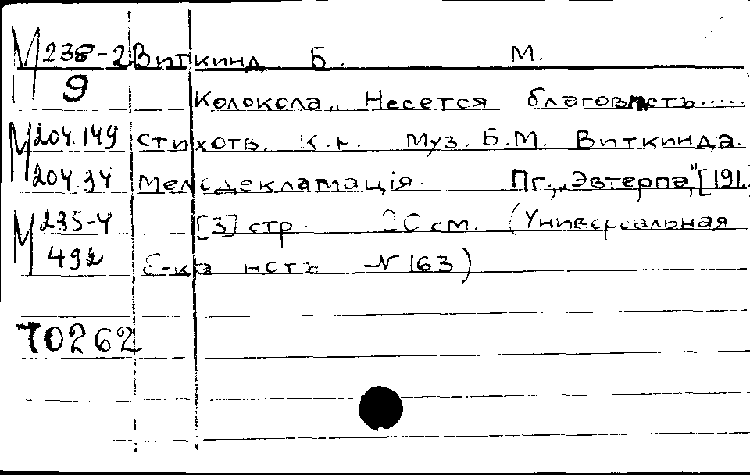 М 238-2 Виткинд Б. М.
9
Колокола. „Несется благовѣсть.....
М 204.149 стихотв. К.Н. Муз. Б.М. Виткинда.
204.34 Мелодекламація. Пг., „Эвтерпа", [191
М 235-4 [3] стр. 20 см. (Универсальная
492 б-ка нотъ № 163)
70262